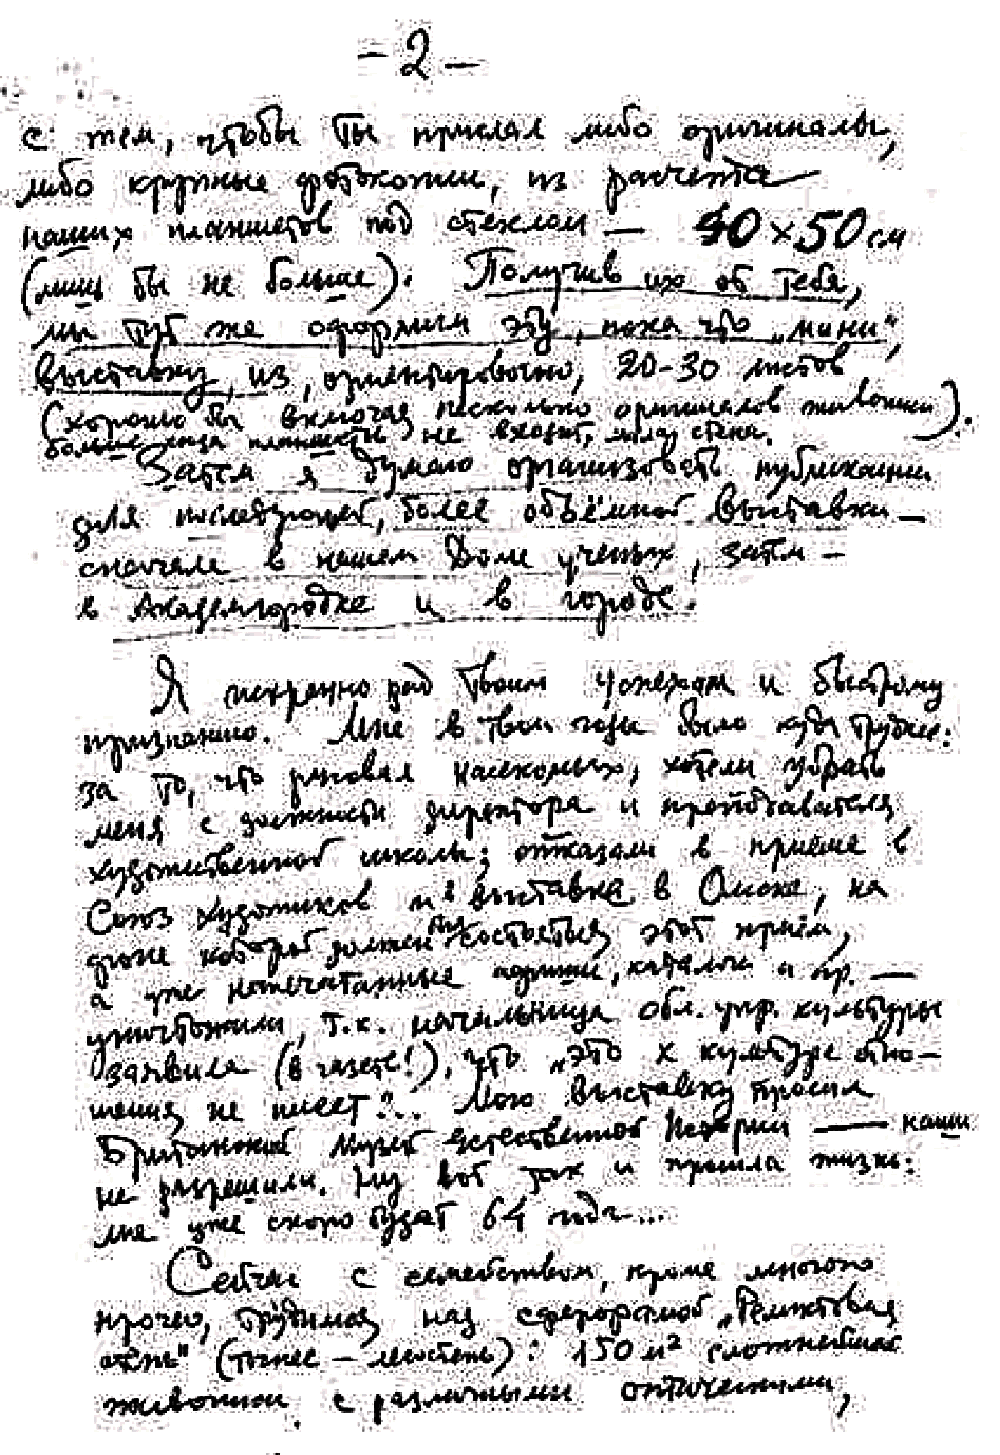 - 2 -
с тем, чтобы ты прислал либо оригиналы,
либо крупные фотокопии, из расчета
наших планшетов под стеклом — 40 × 50 см
(лишь бы не больше). Получив их от тебя,
мы тут же оформим эту, пока что „мини“,
выставку, из, ориентировочно, 20-30 листов
(хорошо бы включая несколько оригиналов живописи).
больше наши планшеты не входит, мала стена.
Затем я думаю организовать публикации
для последующей, более объёмной выставки —
сначала в нашем Доме учёных, затем —
в Академгородке и в городе.
Я искренно рад твоим успехам и быстрому
признанию. Мне в твои годы было куда труднее:
за то, что рисовал насекомых, хотели убрать
меня с должности директора и преподавателя
художественной школы; отказали в приёме в
Союз художников и в выставке в Омске, на
фоне которой должен был состояться этот приём,
а уже напечатанные афиши, каталоги и пр. —
уничтожили, т.к. начальница обл. упр. культуры
заявила (в газете!), что „это к культуре отно-
шения не имеет“... Мою выставку просил
Британский музей Естественной Истории — наши
не разрешили. Ну вот так и прошла жизнь:
мне уже скоро будет 64 года...
Сейчас с семейством, кроме многого
прочего, трудимся над сферорамой „Реликтовая
степь“ (точнее – лесостепь): 150 м² сложнейшей
живописи с различными оптическими,